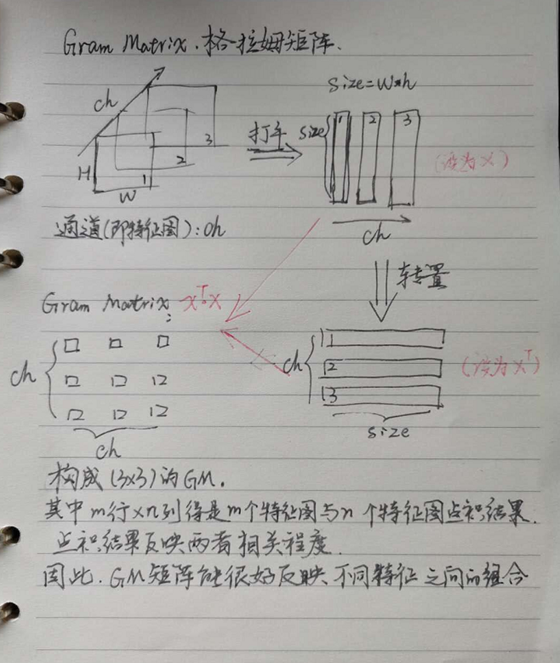 Gram Matrix.格拉姆矩阵.
size=w*h
ch
H
W
1
2
3
打平
size
1
2
3
(设为X)
ch
通道(即特征图):ch
转置
Gram Matrix: XᵀX
ch
ch
ch
1
2
3
(设为Xᵀ)
size
构成(3x3)的GM.
其中m行×n列得是m个特征图与n个特征图点积结果.
点积结果反映两者相关程度.
因此.GM矩阵能很好反映不同特征之间的组合